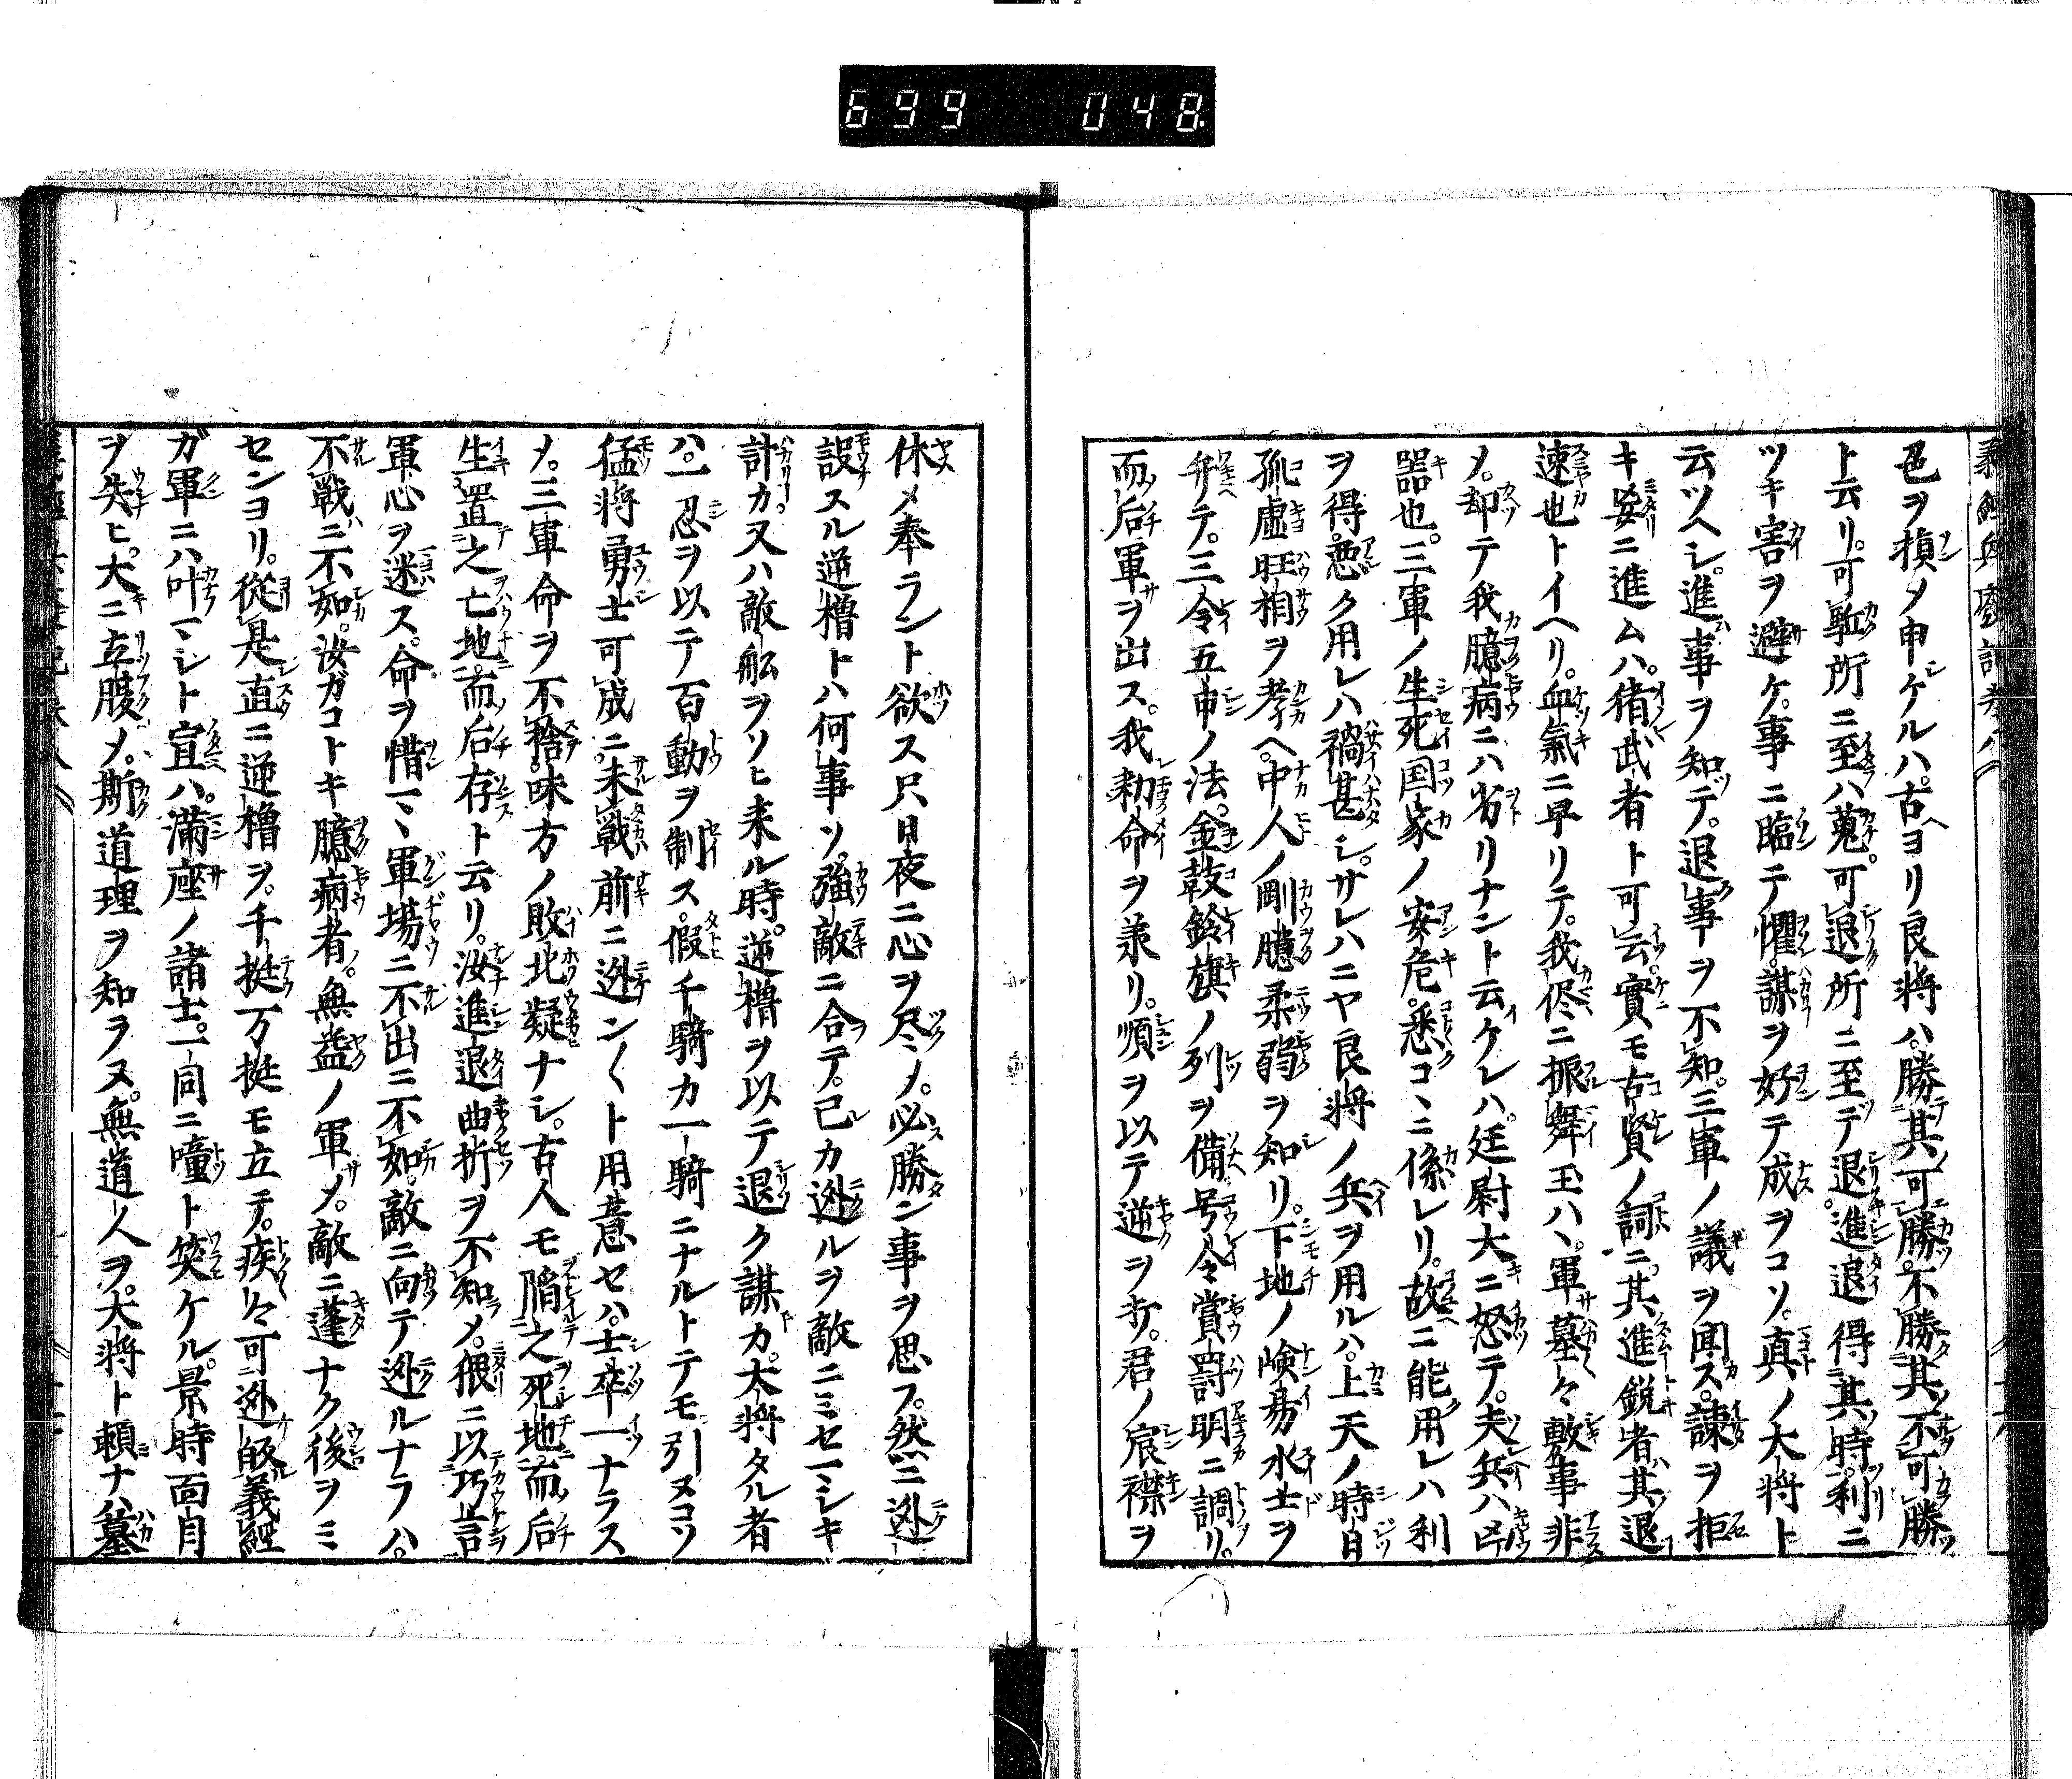 699 048
邑ヲ損メ申ケルハ。古ヨリ良将ハ。勝其可勝。不勝其不可勝
ト云リ。可駈所ニ至ハ蒐。可退所ニ至テ退。進退得其時利ニ
ツキ害ヲ避ケ。事ニ臨テ懼。謀ヲ好テ成ヲコソ。真ノ大将ト
云ツヘシ。進事ヲ知テ。退事ヲ不知。三軍ノ議ヲ聞ス。諌ヲ拒
キ妄ニ進ムハ。猪武者ト可云。實モ古賢ノ詞ニ。其進鋭者ハ其退
速也トイヘリ。血氣ニ早リテ。我侭ニ振舞玉ハヽ。軍墓々々敷事非
メ。却テ我臆病ニハ劣リナント云ケレハ。廷尉大ニ怒テ。夫兵ハ凶
器也。三軍ノ生死国家ノ安危。悉コヽニ係レリ。故ニ能用レハ利
ヲ得。悪ク用レハ禍甚シ。サレハニヤ良将ノ兵ヲ用ルハ。上天ノ時日
孤虚旺相ヲ考ヘ。中人ノ剛臆柔弱ヲ知リ。下地ノ険易水土ヲ
弁テ。三令五申ノ法。金鼓鈴旗ノ列ヲ備。号令賞罸明ニ調リ。
而后軍ヲ出ス。我勅命ヲ羕リ。順ヲ以テ逆ヲ伐。君ノ宸襟ヲ
休メ奉ラント欲ス只日夜ニ心ヲ尽シメ。必勝ン事ヲ思フ。然ニ迯
設スル逆櫓トハ何事ソ。強敵ニ合テ。己カ迯ルヲ敵ニミセマシキ
計カ。又ハ敵舩ヲソヒ来ル時。逆櫓ヲ以テ退ク謀カ。大将タル者
ハ。一忍ヲ以テ百動ヲ制ス。假千騎カ一騎ニナルトテモ。引ヌコソ
猛将勇士可成ニ。未戦前ニ迯ン〱ト用意セハ。士卒一ナラス
メ。三軍命ヲ不捨。味方ノ敗北疑ナシ。古人モ陥之死地而后
生。置之亡地而后存ト云リ。汝進退曲折ヲ不知メ。猥ニ以巧言
軍心ヲ迷ス。命ヲ惜マヽ軍場ニ不出ニ不如。敵ニ向テ迯ルナラハ。
不戦ニ不如。汝ガコトキ臆病者。無益ノ軍メ。敵ニ蓬ナク後ヲミ
センヨリ。従是直ニ逆櫓ヲ。千挺万挺モ立テ。疾々可迯皈。義経
ガ軍ニハ叶マシト宣ハ。満座ノ諸士。一同ニ噇ト笑ケル。景時面目
ヲ失ヒ。大ニ立腹メ。斯道理ヲ知ラヌ。無道人ヲ。大将ト頼ナハ。墓